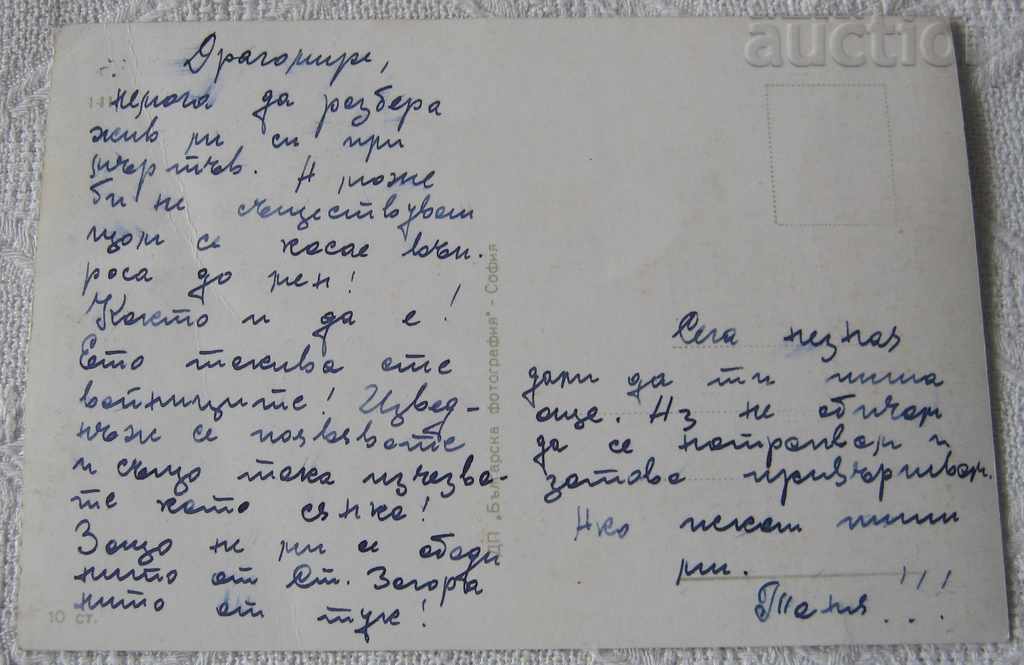 auction
Драгомире,
немога да разбера
жив ли си или
мъртъв. А може
би не съществуваш
щом се касае въп.
роса до мен!
Както и да е!
Ето такива сте
войниците! Извед-
нъж се появявате
и също така изчезва-
те като сянка!
Защо не ми се обади
нито от Ст. Загора
нито от тук!
10 ст.
ДП „Българска фотография" - София
Сега незная
дали да ти пиша
още. Аз не обичам
да се натрапвам и
затова приключвам.
Ако искаш пиши
ми.
Таня...!!!